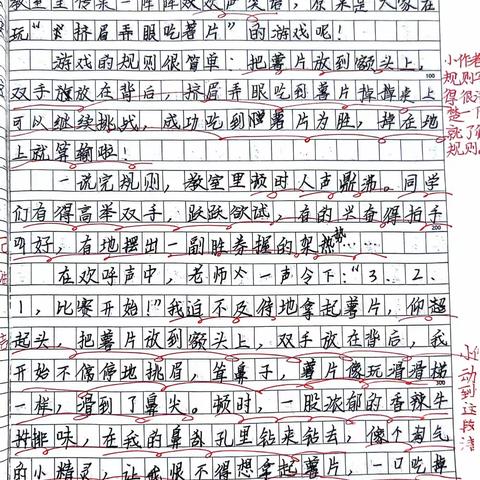 教室里传来一阵阵欢欢声笑语，原来是大家在
玩“挤眉弄眼吃薯片”的游戏呢！
游戏的规则很简单：把薯片放到额头上，
双手放在背后，挤眉弄眼吃到薯片掉掉来上
可以继续挑战，成功吃到薯片为胜，掉在地
上就算输啦！
一说完规则，教室里顿时人声鼎沸。同学
们有得高举双手，跃跃欲试，有的兴奋得拍手
叫好，有地摆出一副胜券握的架势……
在欢呼声中，老师一声令下：“3、2、
1，比赛开始！”我迫不及待地拿起薯片，仰超
起头，把薯片放到额头上，双手放在背后，我
开始不停停地挑眉，耸鼻子，薯片像玩滑滑梯
一样，滑到了鼻尖。顿时，一股浓郁的香辣牛
排味，在我的鼻孔里钻来钻去，像个淘气
的小精灵，让我恨不得想拿起薯片，一口吃掉
小作者
规则写
得很清
楚一下
就了解
规则
100
200
300